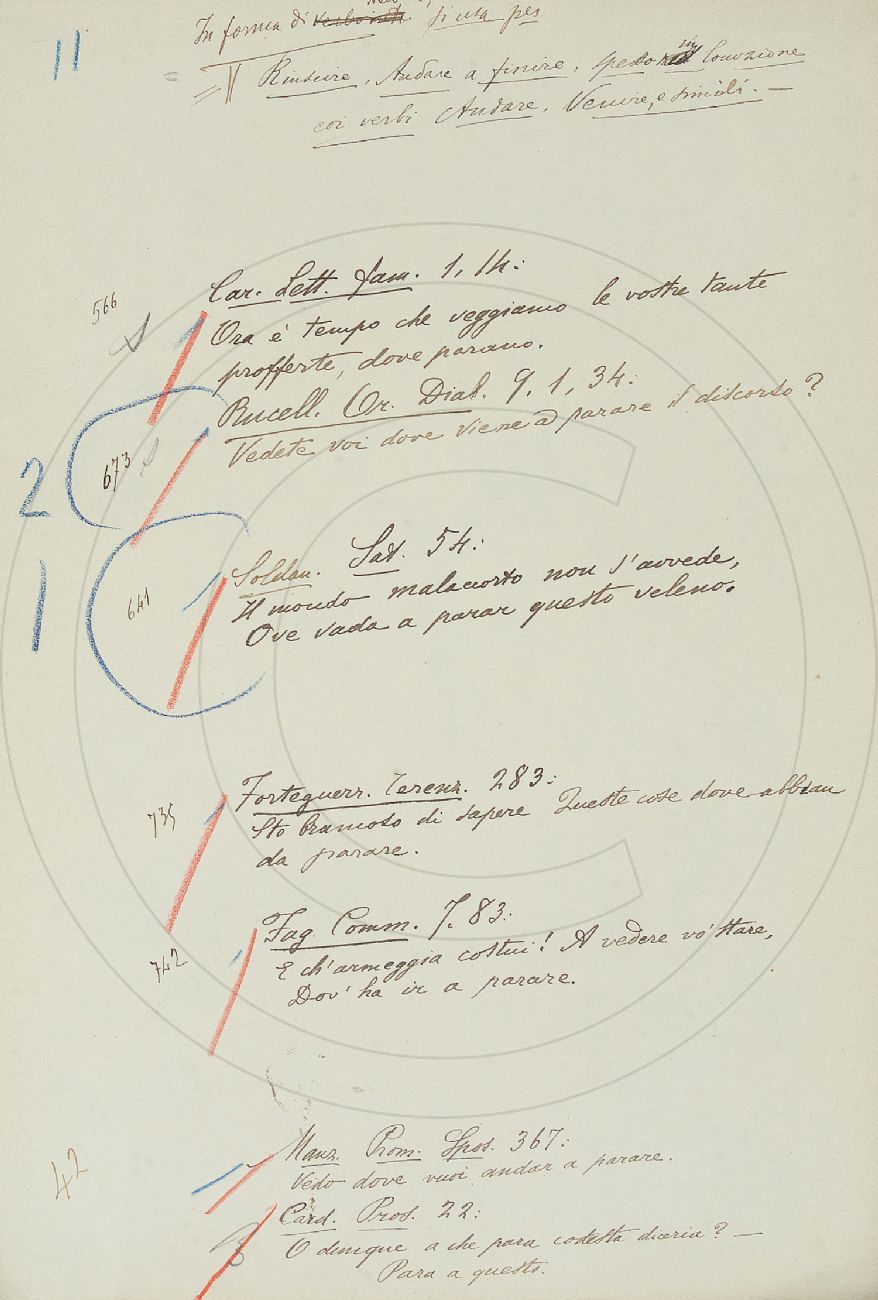 11
In forma di si usa per
= Riuscire, Andare a finire, spesso in Locuzione
coi verbi Andare, Venire, e simili. —
566 Car. Lett. fam. 1, 14:
Ora è tempo che veggiamo le vostre tante
profferte, dove parano.
Rucell. Or. Dial. 9. 1, 34:
2 673 Vedete voi dove viene a parare il discorso?
Soldan. Sat. 54:
1 641 Il mondo malaccorto non s'avvede,
Ove vada a parar questo veleno.
735 Forteguerr. Terenz. 283:
Sto bramoso di sapere Queste cose dove abbian
da parare.
742 Fag. Comm. 7. 83:
E ch'armeggia costui! A vedere vo' stare,
Dov' ha ir a parare.
42 Manz. Prom. Spos. 367:
Vedo dove vuoi andar a parare.
Card. Pros. 22:
O dunque a che para codesta diceria? —
Para a questo.